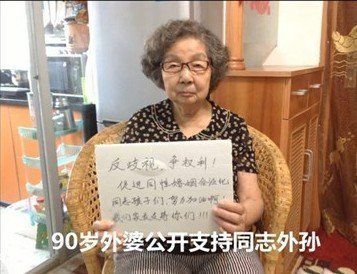 反歧视，争权利！
促进同性婚姻合法化
同志孩子们，努力加油啊！
我们家长支持你们!!!
90岁外婆公开支持同志外孙